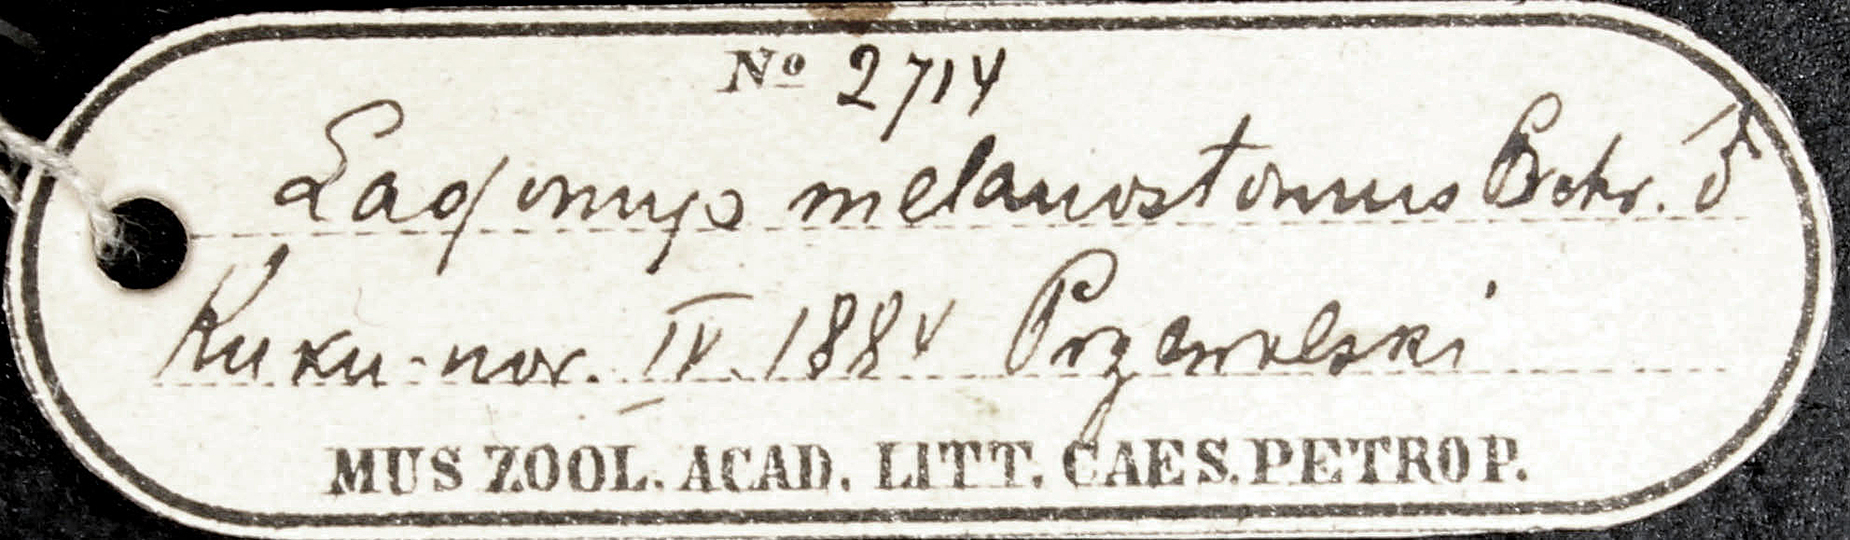 No 2714
Lagomys melanostomus Bchr. ♂
Kuku-nor. IV. 1884 Przewalski
MUS ZOOL. ACAD. LITT. CAES. PETROP.